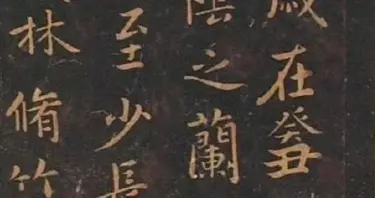 歲在癸丑
陰之蘭
至少長
林脩竹